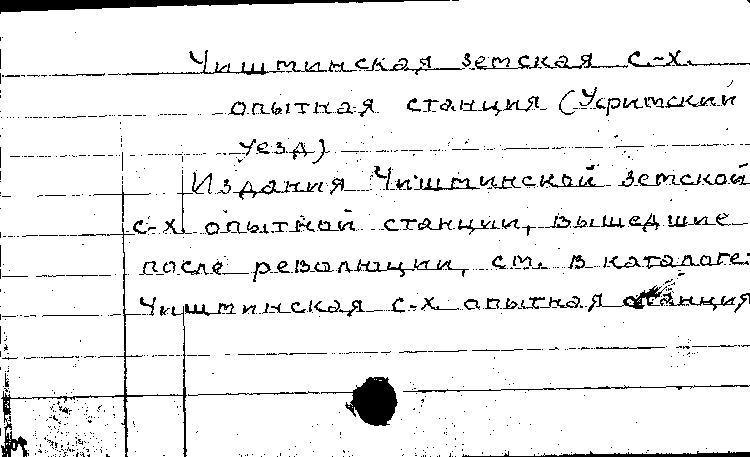 Чиштинская земская с.-х.
опытная станция (Уфимский
уезд)
Издания Чиштинской земской
с-х. опытной станции, вышедшие
после революции, см. в каталоге:
Чиштинская с-х. опытная станция